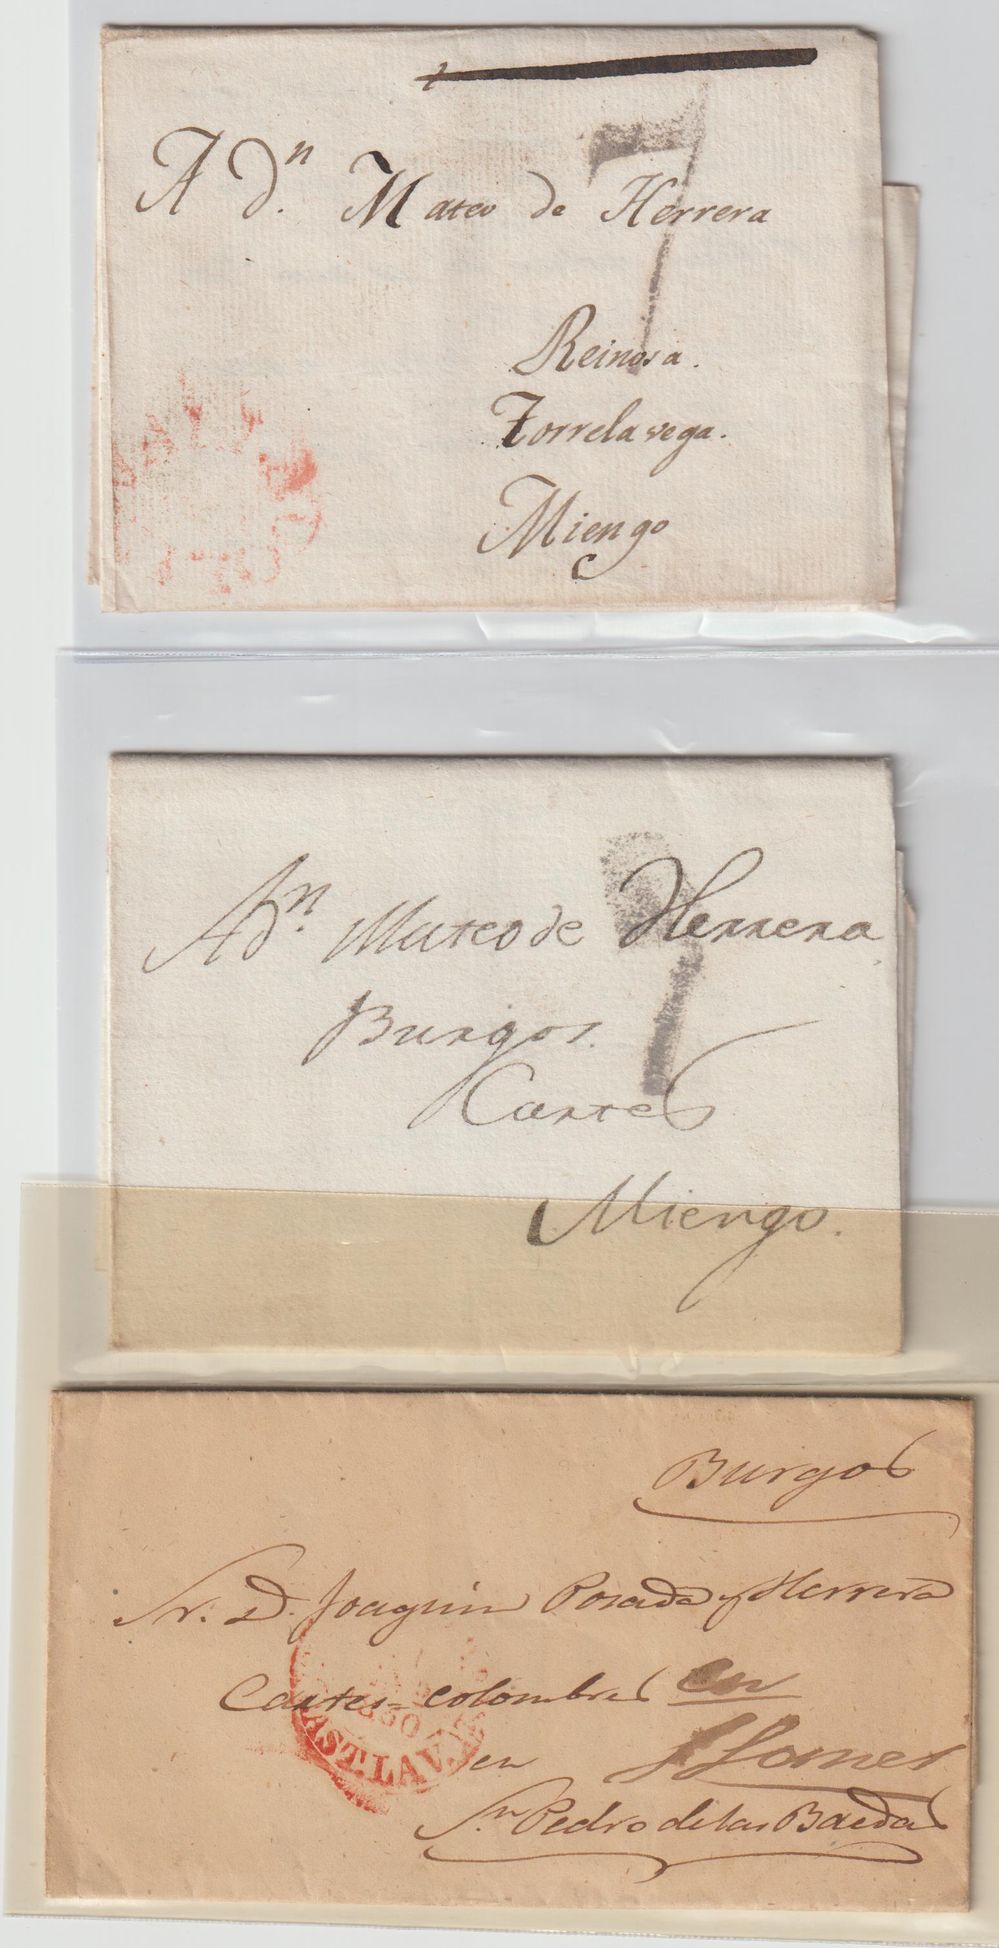 7
A Dn. Mateo de Herrera
Reinosa.
Torrelavega.
Miengo
7
A Dn. Mateo de Herrera
Burgos.
Cartes
Miengo.
Burgos
Sr. D. Joaquin Posada y Herrera
Cartes = Colombres en
en Llanes
Sn. Pedro de las Baedas
1850
CAST.LA V.